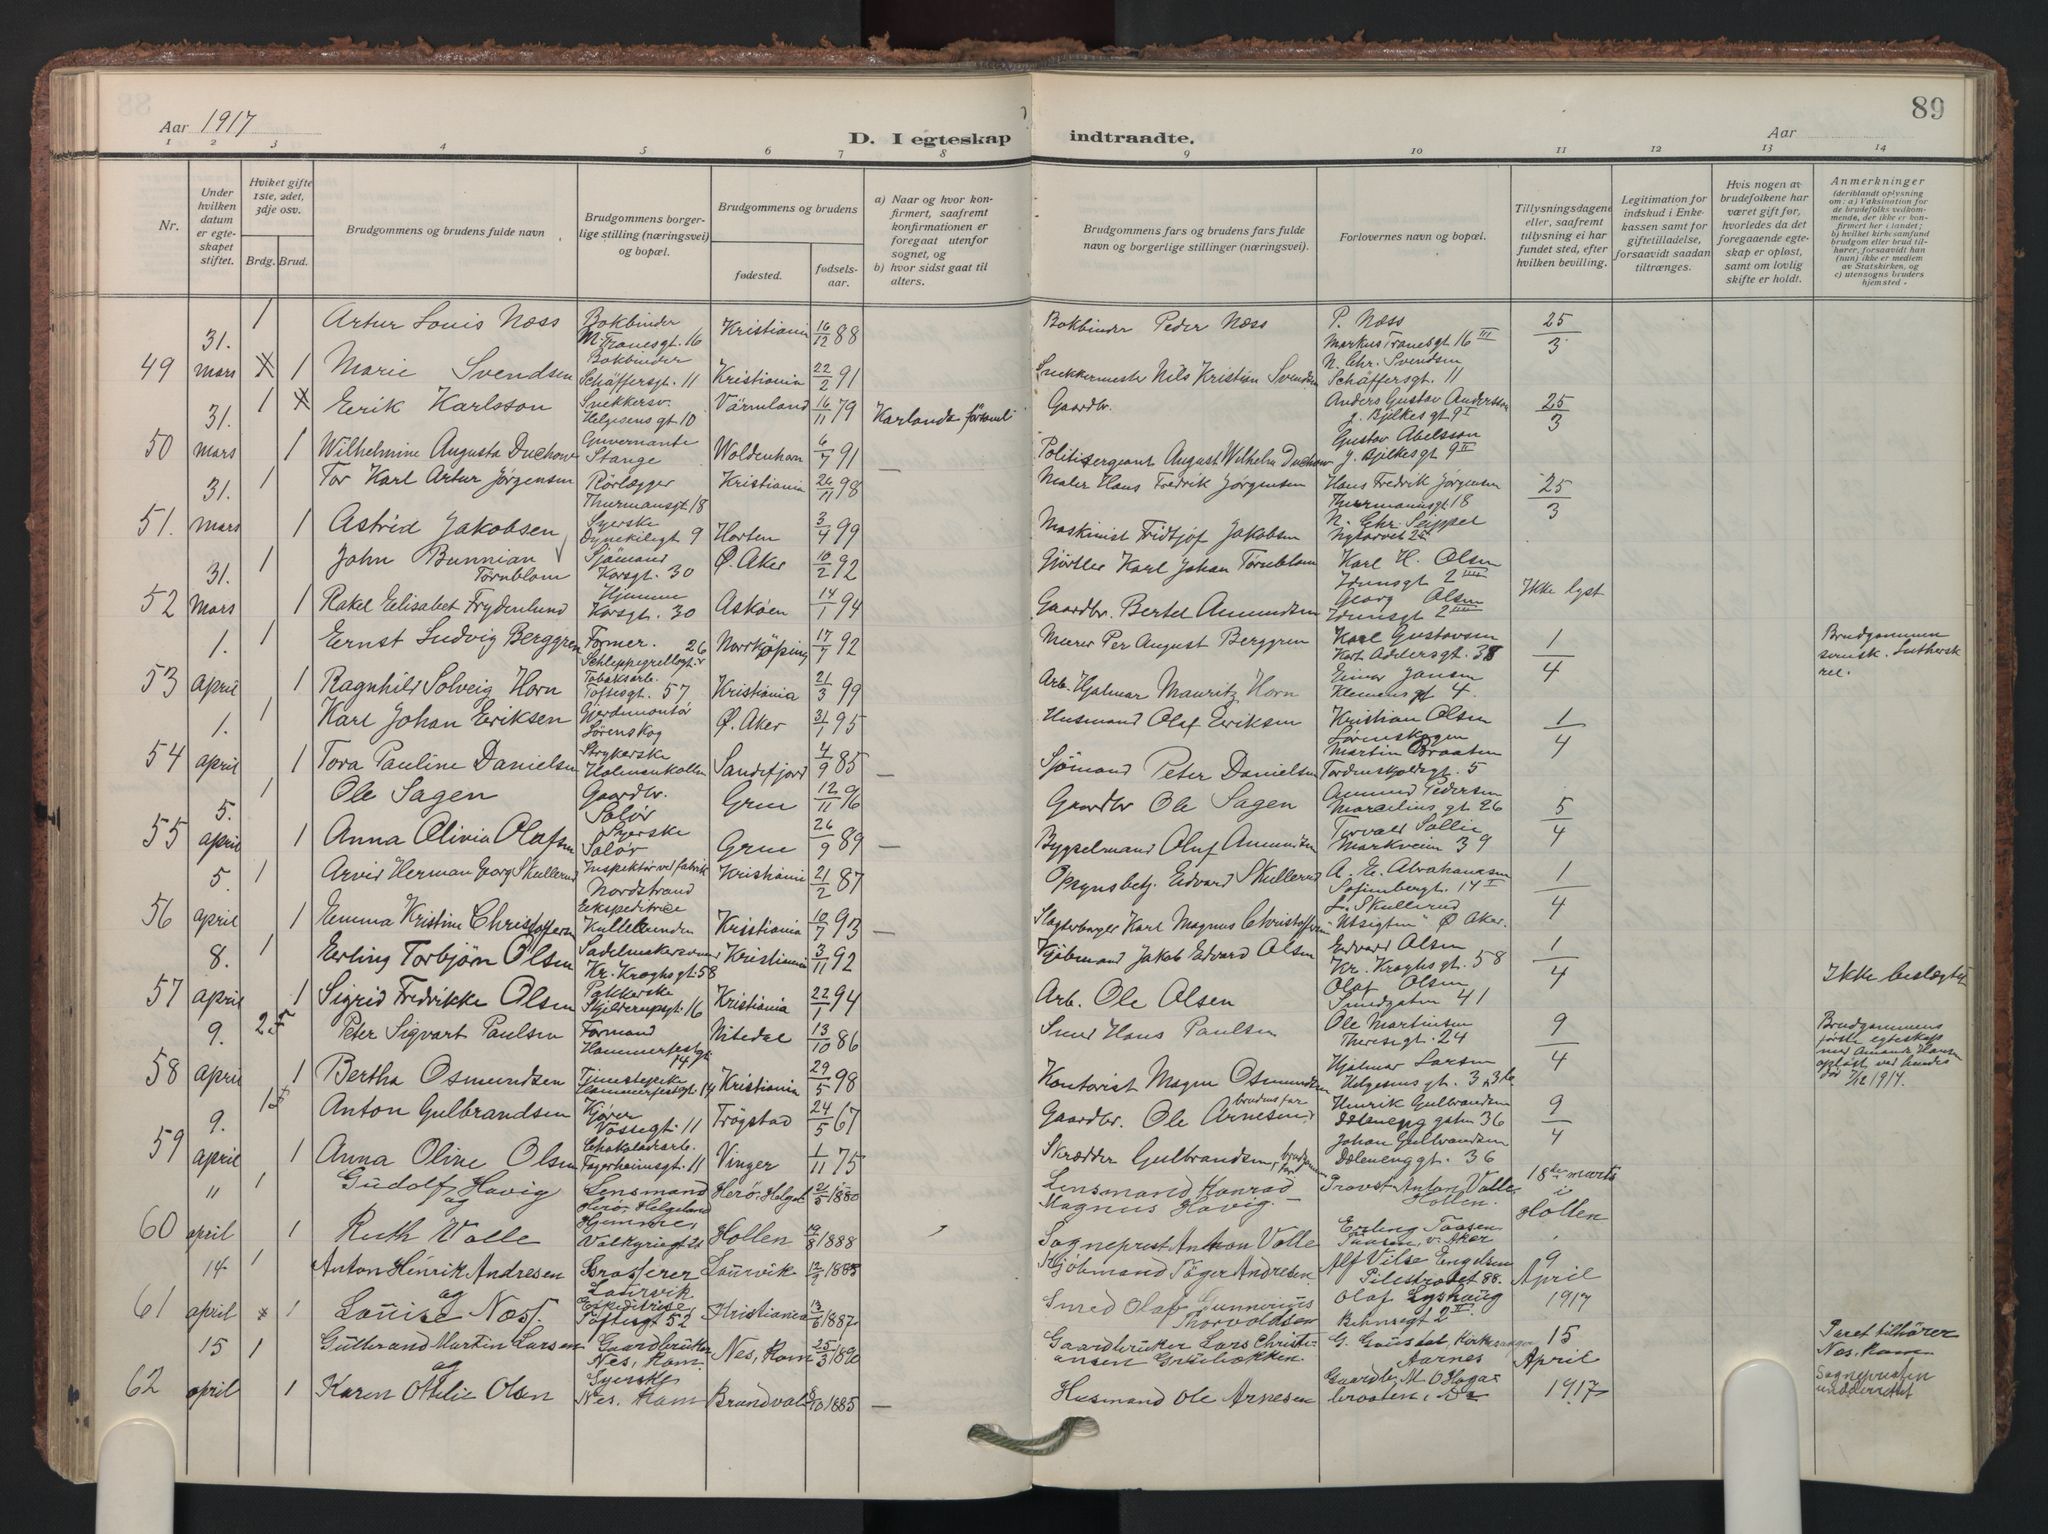 89
Aar 1917
D. I egteskap indtraadte.
Aar
1 2 3 4 5 6 7 8 9 10 11 12 13 14
Nr.
Under hvilken datum er egteskapet stiftet.
Hviket gifte 1ste, 2det, 3dje osv.
Brdg. Brud.
Brudgommens og brudens fulde navn
Brudgommens borgerlige stilling (næringsvei) og bopæl.
Brudgommens og brudens
fødested.
fødselsaar.
a) Naar og hvor konfirmert, saafremt konfirmationen er foregaat utenfor sognet, og
b) hvor sidst gaat til alters.
Brudgommens fars og brudens fars fulde navn og borgerlige stillinger (næringsvei).
Forlovernes navn og bopæl.
Tillysningsdagene eller, saafremt tillysning ei har fundet sted, efter hvilken bevilling.
Legitimation for indskud i Enkekassen samt for giftetilladelse, forsaavidt saadan tiltrænges.
Hvis nogen av brudefolkene har været gift før, hvorledes da det foregaaende egteskap er opløst, samt om lovlig skifte er holdt.
Anmerkninger
(deriblandt oplysning om: a) Vaksination for de brudefolks vedkommende, der ikke er konfirmert her i landet; b) hvilket kirkesamfund brudgom eller brud tilhører, forsaavidt han (hun) ikke er medlem av Statskirken, og c) utensogns bruders hjemsted.
49 31. Mars 1 Artur Louis Næss Bokbinder M. Tranesgt. 16 Kristiania 16/12 88 Bokbinder Peder Næss P. Næss Markus Tranesgt 16 III 25/3
1 Marie Svendsen Bokbinder Schäffersgt. 11 Kristiania 22/2 91 Snekkermester Nils Kristian Svendsen N. Chr. Svendsen Schäffersgt. 11
50 31. Mars 1 Erik Karlsson Snekkersv. Helgesens gt 10 Värmland 16/11 79 Karlanda församl. Gaardbr. Anders Gustav Andersson J. Bjelkes gt 9 I 25/3
1 Wilhelmine Augusta Duchow Guvernante Stange Woldenhorn 6/7 91 — Politisergeant August Wilhelm Duchow Gustav Abelsson J. Bjelkes gt 9 II
51. 31. Mars 1 Tor Karl Artur Jørgensen Rørlægger Thurmansgt 18 Kristiania 26/11 98 Maler Hans Fredrik Jørgensen Hans Fredrik Jørgensen Thurmannsgt 18 25/3
1 Astrid Jakobsen Syerske Dynekilegt 9 Horten 3/4 99 Maskinist Fridtjof Jakobsen N. Chr. Seippel Nytorvet 25
52 31. Mars 1 John Bunnian Tørnblom Sjømand Korsgt. 30 Ø. Aker 10/2 92 Gjørtler Karl Johan Tørnblom Karl H. Olsen Idunnsgt 2 Ikke lyst
1 Rakel Elisabet Frydenlund Hjemme Korsgt. 30 Askøen 14/1 94 Gaardbr. Bertel Amundsen Georg Olsen Idunnsgt 2
53 1. april 1 Ernst Ludvig Berggren Former. Schleppegrellsgt. 26 Norrköping 17/7 92 Murer Per August Berggren Karl Gustavsen Kort Adelersgt. 38 1/4 Brudgommen svensk. Luthersk rel.
1 Ragnhild Solveig Horn Tobaksarb. Toftesgt. 57 Kristiania 21/3 99 Arb. Hjalmar Mauritz Horn Einar Jansen Klemensgt 4.
54 1. april 1 Karl Johan Eriksen Gjerdemontør Lørenskog Ø. Aker 31/1 95 Husmand Olaf Eriksen Kristian Olsen Lørenskogen 1/4
1 Tora Pauline Danielsen Strykerske Holmenkollen Sandefjord 4/9 85 — Sjømand Peter Danielsen Martin Braaten Tordenskjoldsgt. 5
55 5. april 1 Ole Sagen Gaardbr. Solør Grue 12/11 96 Gaardbr Ole Sagen Amund Pedersen Marcelius gt 26 5/4
1 Anna Olivia Olafsen Syerske Solør Grue 26/9 89 — Bygselmand Oluf Amundsen Torvald Sollie Markveien 39
56 5. april 1 Arvid Herman Georg Skullerud Inspektør ved fabrik Nordstrand Kristiania 21/2 87 Opsynsbetj. Edvard Skullerud A. E. Abrahamsen Sofienbergt. 14 I 1/4
1 Emma Kristine Christoffersen Ekspeditrice Kullebunden Kristiania 10/7 93 — Slagterborger Karl Magnus Christoffersen L. Skullerud "Utsigten" Ø Aker.
57 8. april 1 Erling Torbjørn Olsen Sadelmakersvend Kr. Kroghsgt. 58 Kristiania 3/11 92 Kjøbmand Jakob Edvard Olsen Edvard Olsen Kr. Kroghsgt. 58 1/4
1 Sigrid Fredrikke Olsen Pakkerske Skjelderupsgt. 16 Kristiania 22/1 94 Arb. Ole Olsen Olaf Olsen Smedgaten 41 Ikke beslegtet
58 9. april 2. Peter Sigvart Paulsen Formand Hammerfestgt. 14 Nitedal 13/10 86 Smed Hans Paulsen Ole Martinsen Theresegt. 24 9/4 Brudgommens første egteskap med Amanda Hansen opløst ved hendes død 1917.
1 Bertha Osmundsen Tjenestepike Hammerfestgt. 14 Kristiania 29/5 98 Kontorist Magne Osmundsen Hjalmar Larsen Helgesens gt.
59 9. april 1 Anton Gulbrandsen Kjører Vossegt. 11 Trøgstad 24/5 67 Gaardbr. Ole Arnesen, brudens far Henrik Gulbrandsen Dælenenggaten 36 9/4
1 Anna Oline Olsen Chokoladearb. Fagerheimsgt. 11 Vinger 1/11 75 Skrædder Gulbrandsen, brudgommens far Johan Gulbrandsen Dælenenggt. 36
60 11 april 1 Gudolf Havig og Lensmand Herø, Helgeland Herø, Helgel. 21/5 1880 Lensmand Konrad Magnus Havig. Provst Anton Valle, Hollen. 18de marts i Hollen
1 Ruth Valle Hjemme, Valkyriegt 21 Hollen 19/8 1888 Sogneprest Anton Valle Erling Taasen Taasen, v. Aker
61 14 april 1 Anton Henrik Andresen og Grosserer Laurvik Laurvik 12/9 1885 Kjøbmand Inger Andresen. Alf Vilse Engelsen Pilestrædet 88. 9 April 1917
1 Louise Næss. Expeditrise, Toftesgt 52 Kristiania 13/6 1887 Smed Olaf Gunnerius Thorvoldsen Olaf Lyshaug Behnsegt 2 II.
62 15 april 1 Gulbrand Martin Larsen og Gaardbruker Nes, Rom. Nes, Rom. 25/3 1890 Gaardbruker Lars Christiansen Gruebækken. G. Gausdal, Kirkesanger Aarnes 15 April 1917 Paret tilhører Nes, Rom.
1 Karen Othilie Olsen Syerske Nes, Rom Brandval 9/10 1885 — Husmand Ole Arnesen Gaardbr. M. O. Hagabraaten, Do Sogneprsten underrettet